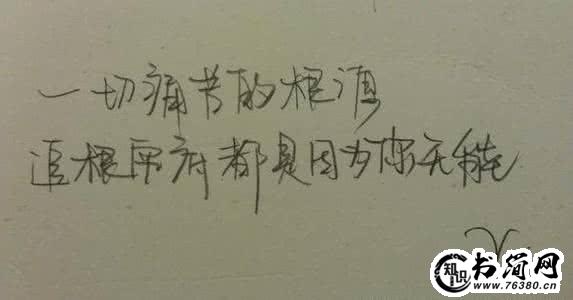 一切痛苦的根源
追根都是因为你无能
知识 书简网
www.76380.cn